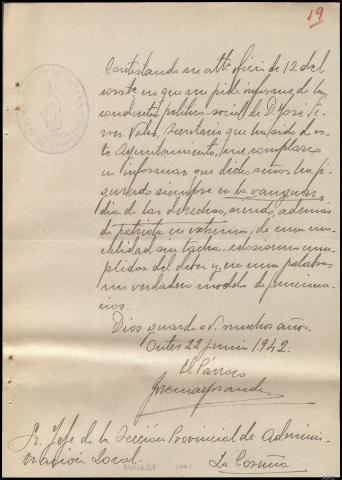 19
Contestando su attº oficio de 12 del
corrte en que me pide informe de la
conducta político social de D. José
Secretario que ha sido de es-
te Ayuntamiento, me complazco
en informar que dicho señor ha fi-
gurado siempre en la vanguar-
dia de las derechas, siendo, además
de patriota en extremo, de una mo-
ralidad sin tacha, celosísimo cum-
plidor del deber y, en una palabra
un verdadero modelo de funciona-
rios.
Dios guarde a V. muchos años.
Outes 22 junio 1942.
El Párroco
Sr. Jefe de la Sección Provincial de Adminis-
tración Local.
La Coruña